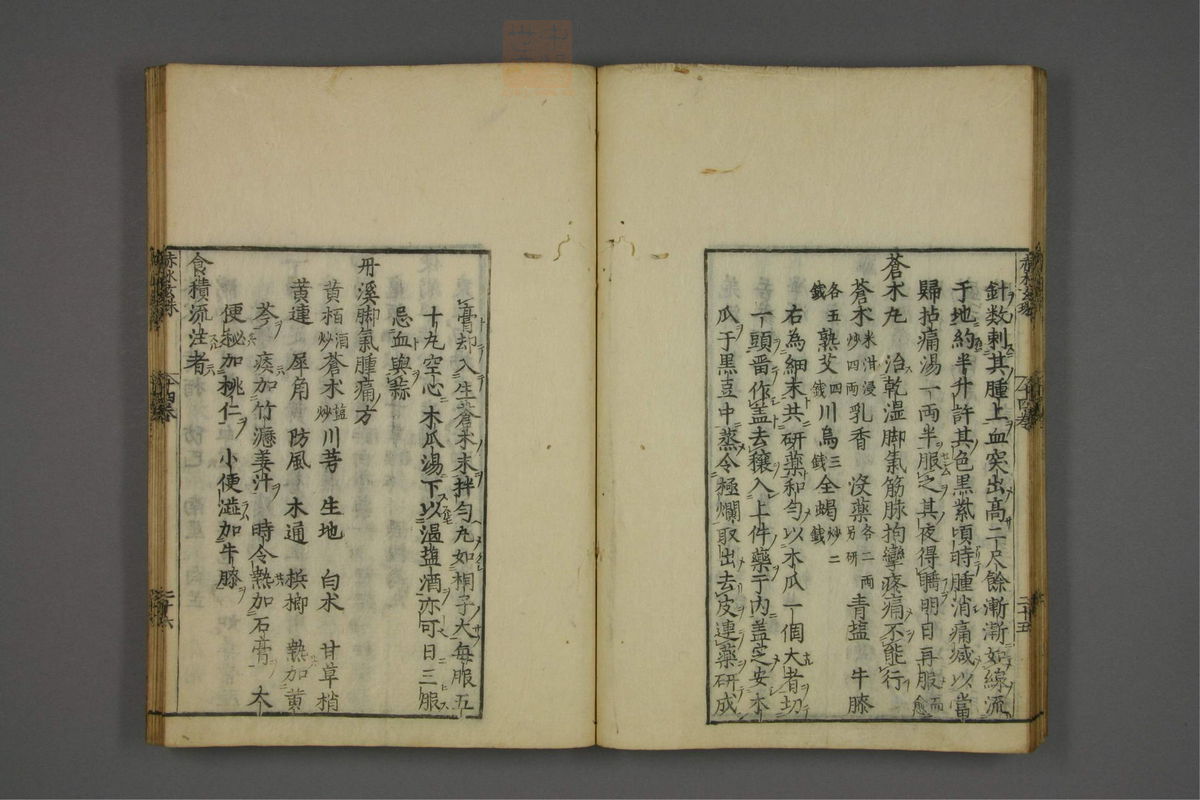 針数刺其腫上血突出高二尺餘漸漸如線流
于地約半升許其色黒紫頃時腫消痛減以當
歸拈痛湯一両半服之其夜得睡明日再服而愈
蒼朮丸 治乾湿脚氣筋脉拘攣疼痛不能行
蒼朮米泔浸炒四両 乳香 没薬各二両另研 青塩 牛膝
各五錢 熟艾四錢 川烏三錢 全蝎炒二錢
右為細末共研薬和匀以木瓜一個大者切
一頭留作盖去穣入上件薬于内盖定安木
瓜于黒豆中蒸令極爛取出去皮連薬研成
膏却入生蒼朮末拌匀丸如桐子大毎服五
十丸空心木瓜湯下以温塩酒亦可日三服
忌血與蒜
丹溪脚氣腫痛方
黄栢酒炒 蒼朮塩炒 川芎 生地 白朮 甘草梢
黄連 犀角 防風 木通 梹榔 熱加黄
芩 痰加竹瀝姜汁 時令熱加石膏 大
便秘加桃仁 小便澁加牛膝
食積流注者
十四巻
二十五
二十六